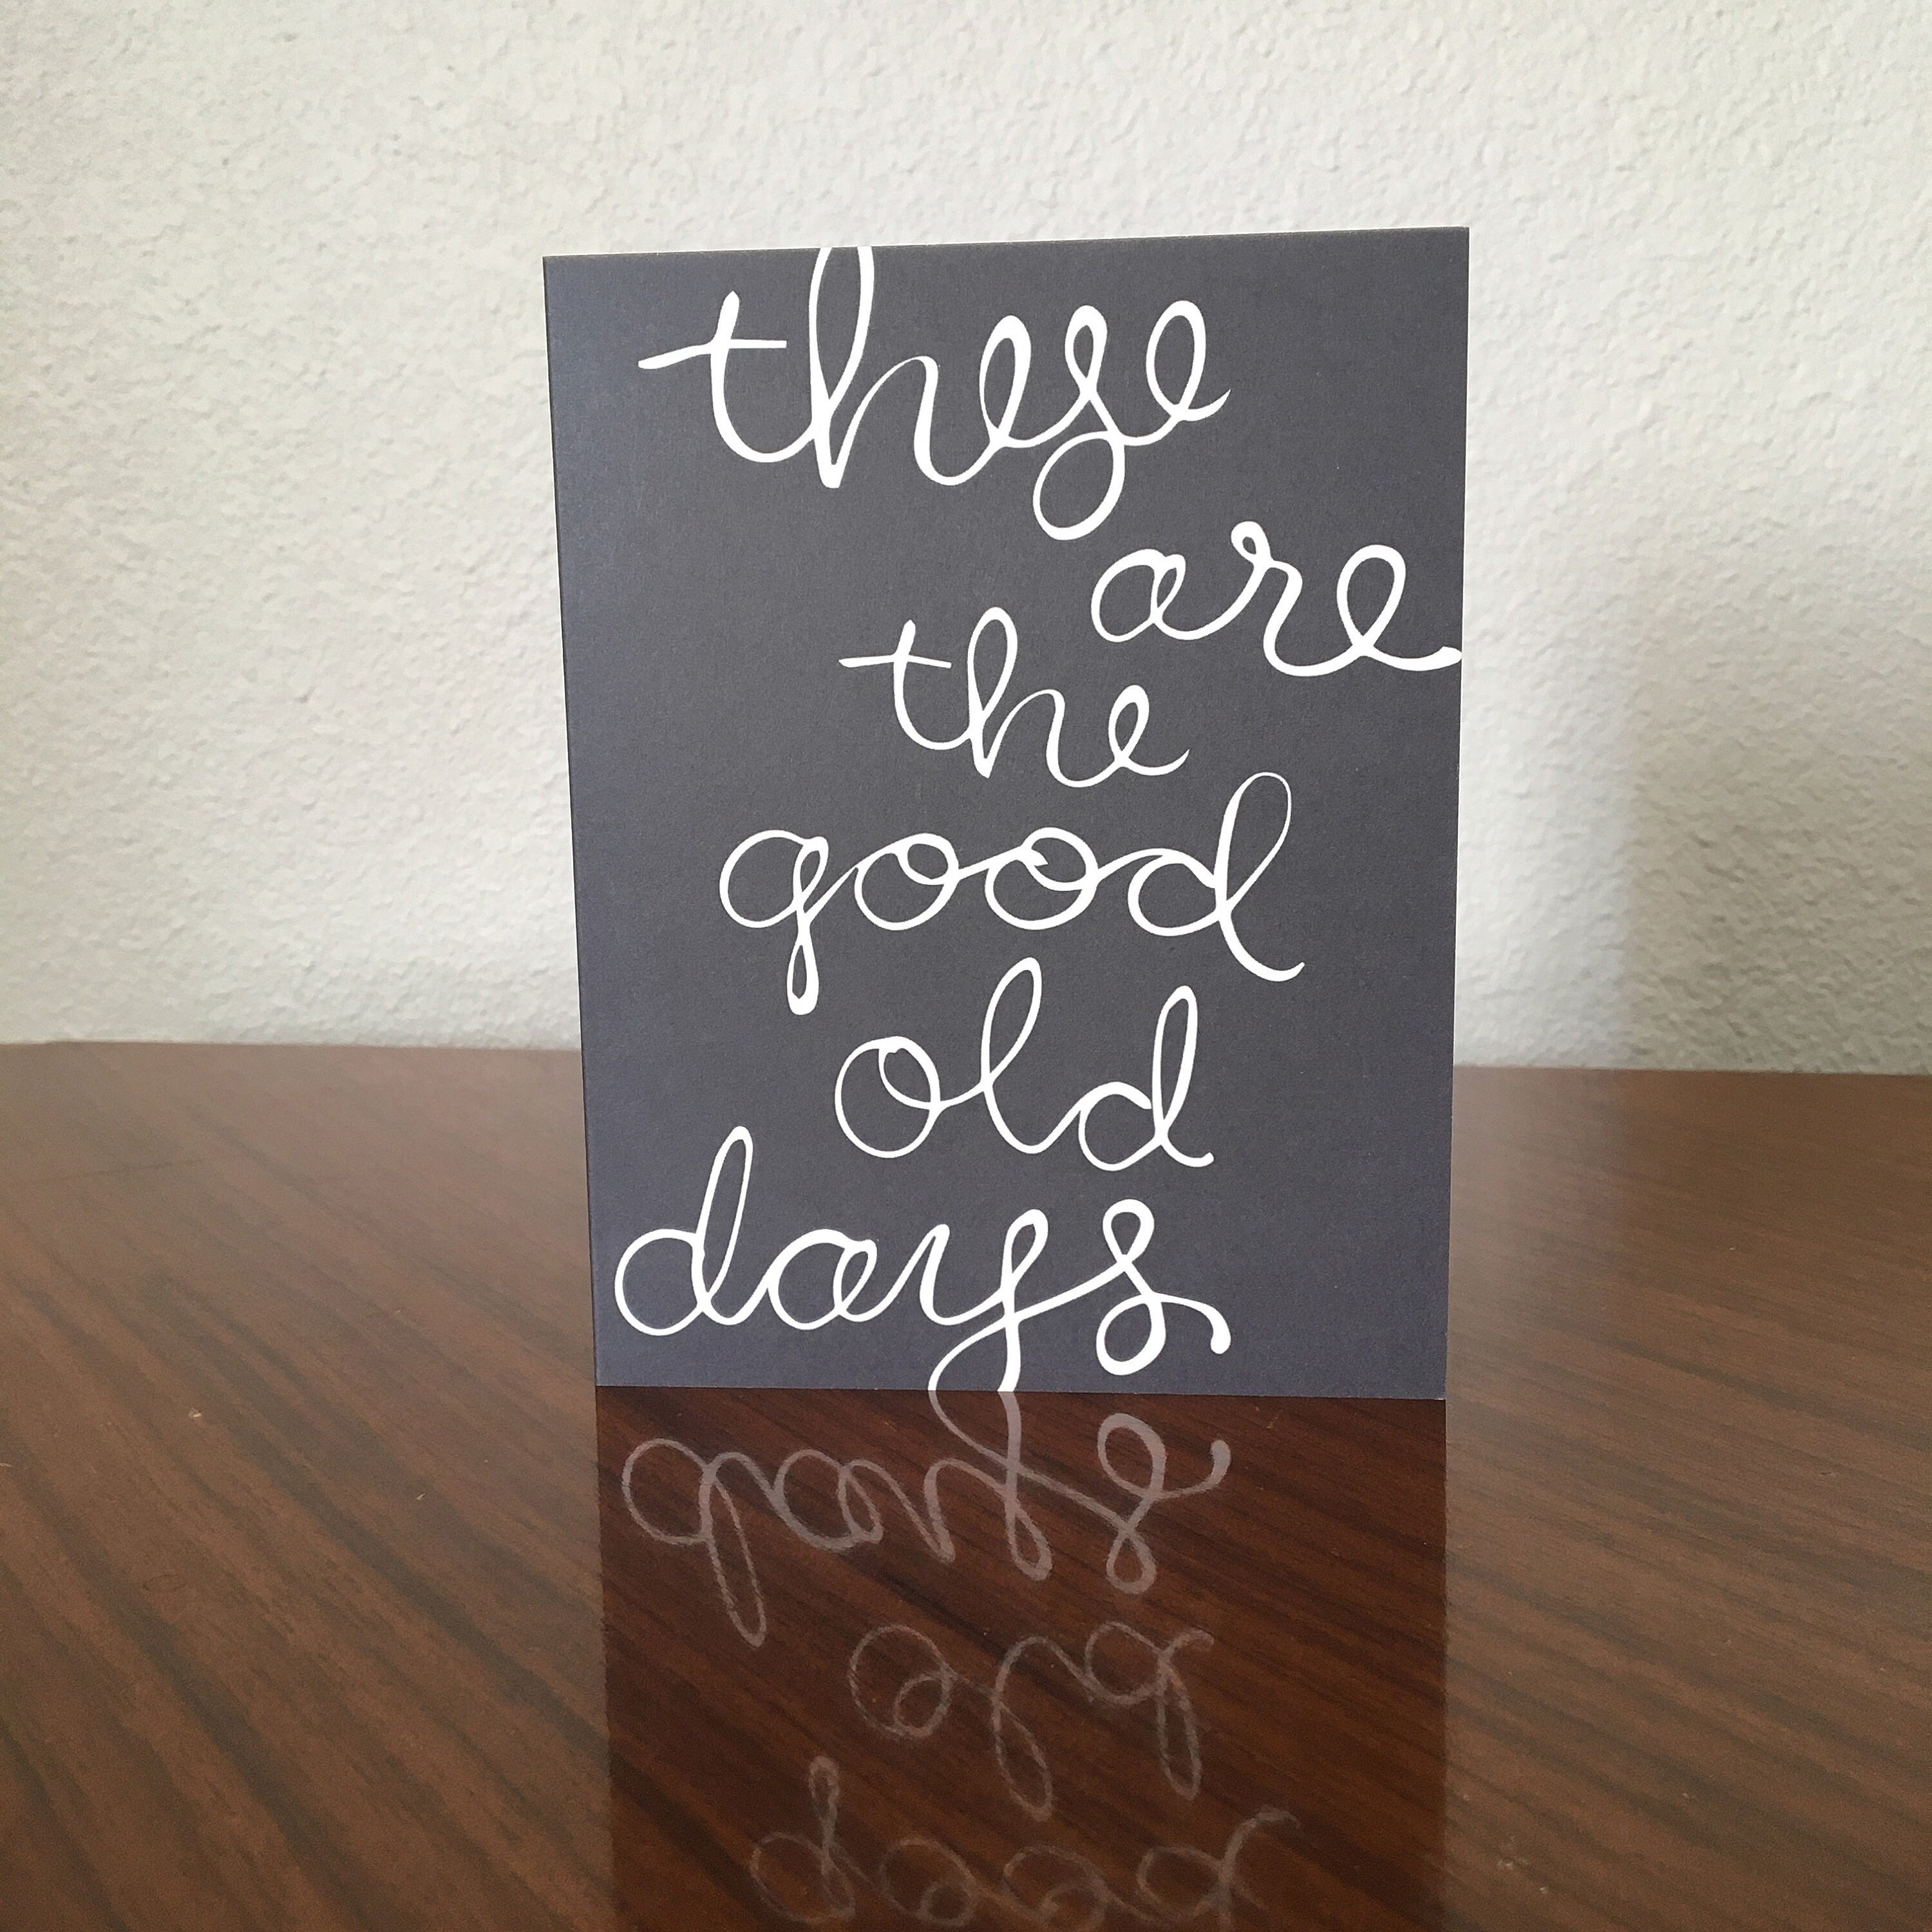 these
are
the
good
old
days